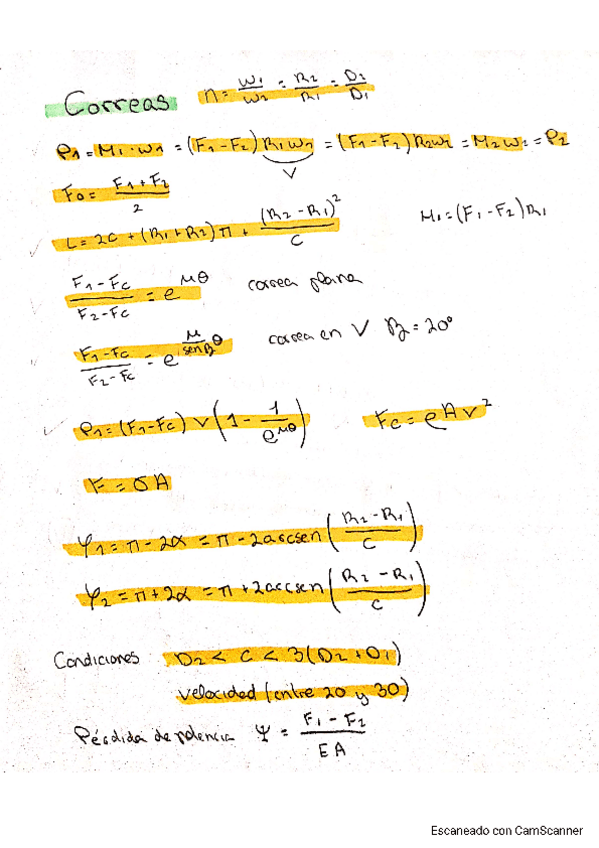 Correas n = W1/W2 = R2/R1 = D2/D1
P1 = M1·w1 = (F1-F2) R1w1 = (F1-F2) R2w2 = M2w2 = P2
V
F0 = (F1+F2)/2
L = 2C + (R1+R2) π + (R2-R1)²/C M1 = (F1-F2) R1
(F1-Fc)/(F2-Fc) = e^(μθ) correa plana
(F1-Fc)/(F2-Fc) = e^(μ/senβ θ) correa en V β = 20°
P1 = (F1-Fc) V (1 - 1/e^(μθ)) Fc = ρAv²
F = σA
φ1 = π - 2α = π - 2arcsen((R2-R1)/C)
φ2 = π + 2α = π + 2arcsen((R2-R1)/C)
Condiciones D2 < C < 3(D2+D1)
velocidad (entre 20 y 30)
Pérdida de potencia Ψ = (F1-F2)/(EA)
Escaneado con CamScanner